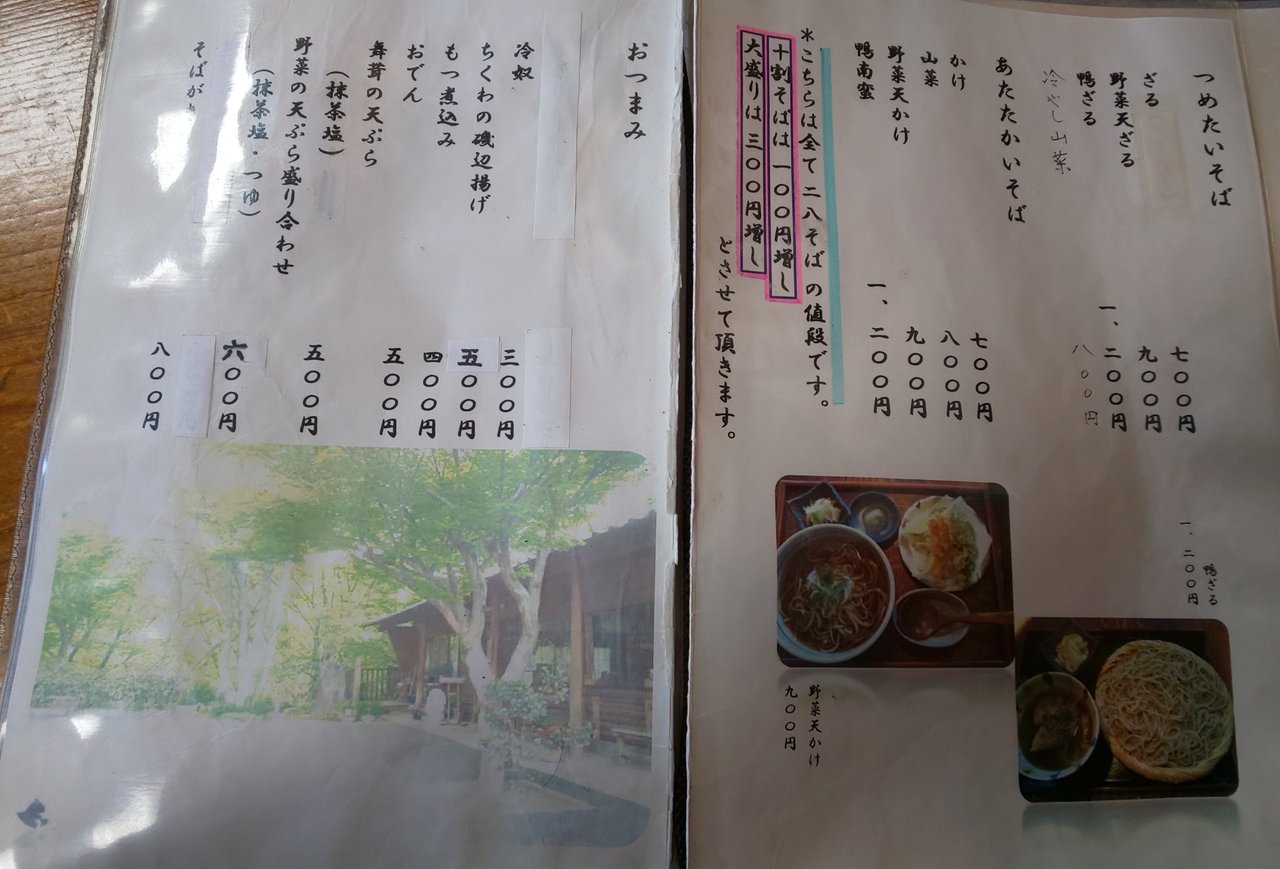 つめたいそば
ざる 七〇〇円
野菜天ざる 九〇〇円
鴨ざる 一、二〇〇円
冷やし山菜 八〇〇円
あたたかいそば
かけ 七〇〇円
山菜 八〇〇円
野菜天かけ 九〇〇円
鴨南蛮 一、二〇〇円
*こちらは全て二八そばの値段です。
十割そばは一〇〇円増し
大盛りは三〇〇円増し
とさせて頂きます。
鴨ざる
一、二〇〇円
野菜天かけ
九〇〇円
おつまみ
冷奴 三〇〇円
ちくわの磯辺揚げ 五〇〇円
もつ煮込み 四〇〇円
おでん 五〇〇円
舞茸の天ぷら
(抹茶塩) 五〇〇円
野菜の天ぷら盛り合わせ
(抹茶塩・つゆ) 六〇〇円
八〇〇円